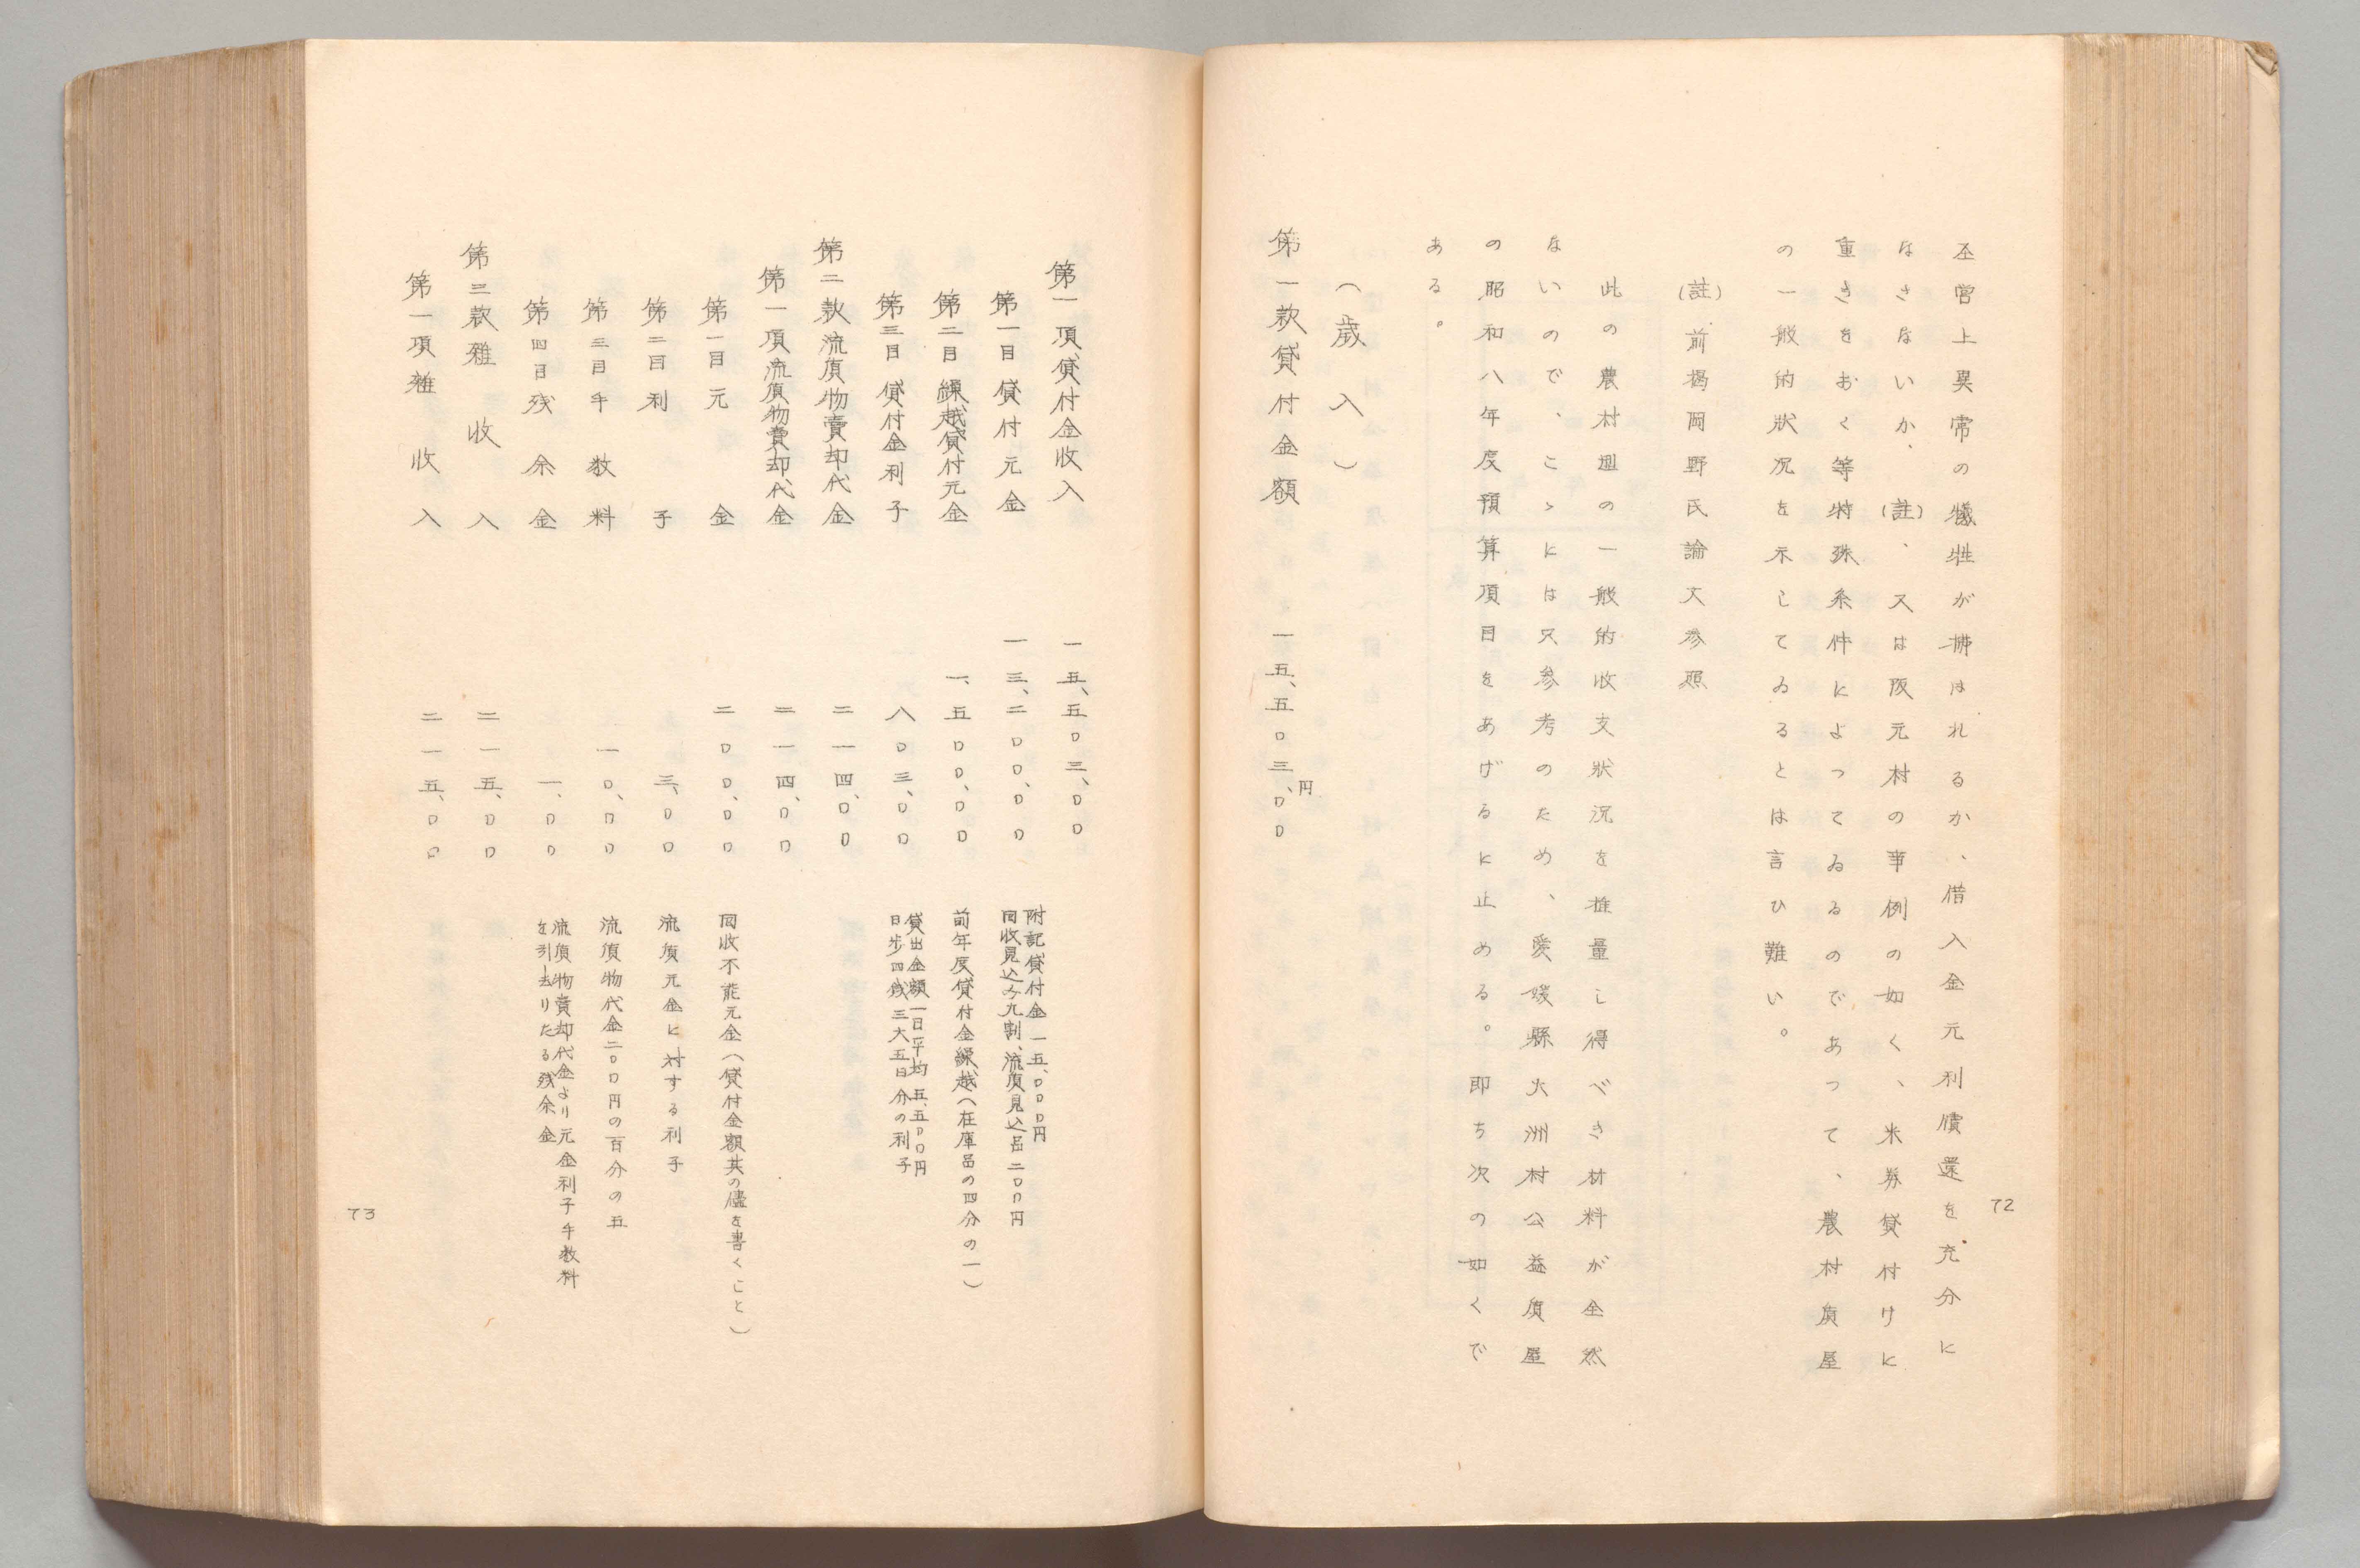 72
営上異常の犠牲が拂はれるか、借入金元利償還を充分に
なさないか、(註)、又は阪元村の事例の如く、米券貸付けに
重きをおく等特殊条件によってゐるのであって、農村質屋
の一般的状況を示してゐるとは言ひ難い。
(註)前掲岡野氏論文参照
此の農村質屋の一般的收支状況を推量し得べき材料が全然
ないので、こゝには只参考のため、愛媛縣大洲村公益質屋
の昭和八年度預算項目をあげるに止める。即ち次の如くで
ある。
(歳入)
第一款貸付金額 一五、五〇三、〇〇円
第一項貸付金收入 一五、五〇三、〇〇
第一目貸付元金 一三、二〇〇、〇〇 附記貸付金一五、〇〇〇円
回收見込み九割、流質見込品二〇〇円
第二目繰越貸付元金 一、五〇〇、〇〇 前年度貸付金繰越(在庫品の四分の一)
第三目貸付金利子 八〇三、〇〇 貸出金額一日平均五、五〇〇円
日歩四銭三六五日分の利子
第二款流質物賣却代金 二一四、〇〇
第一項流質物賣却代金 二一四、〇〇
第一目元金 二〇〇、〇〇 回收不能元金(貸付金額其の儘を書くこと)
第二目利子 三、〇〇 流質元金に対する利子
第三目手数料 一〇、〇〇 流質物代金二〇〇円の百分の五
第四目残余金 一、〇〇 流質物賣却代金より元金利子手数料
を引去りたる残余金
第三款雑收入 二一五、〇〇
第一項雑收入 二一五、〇〇
73